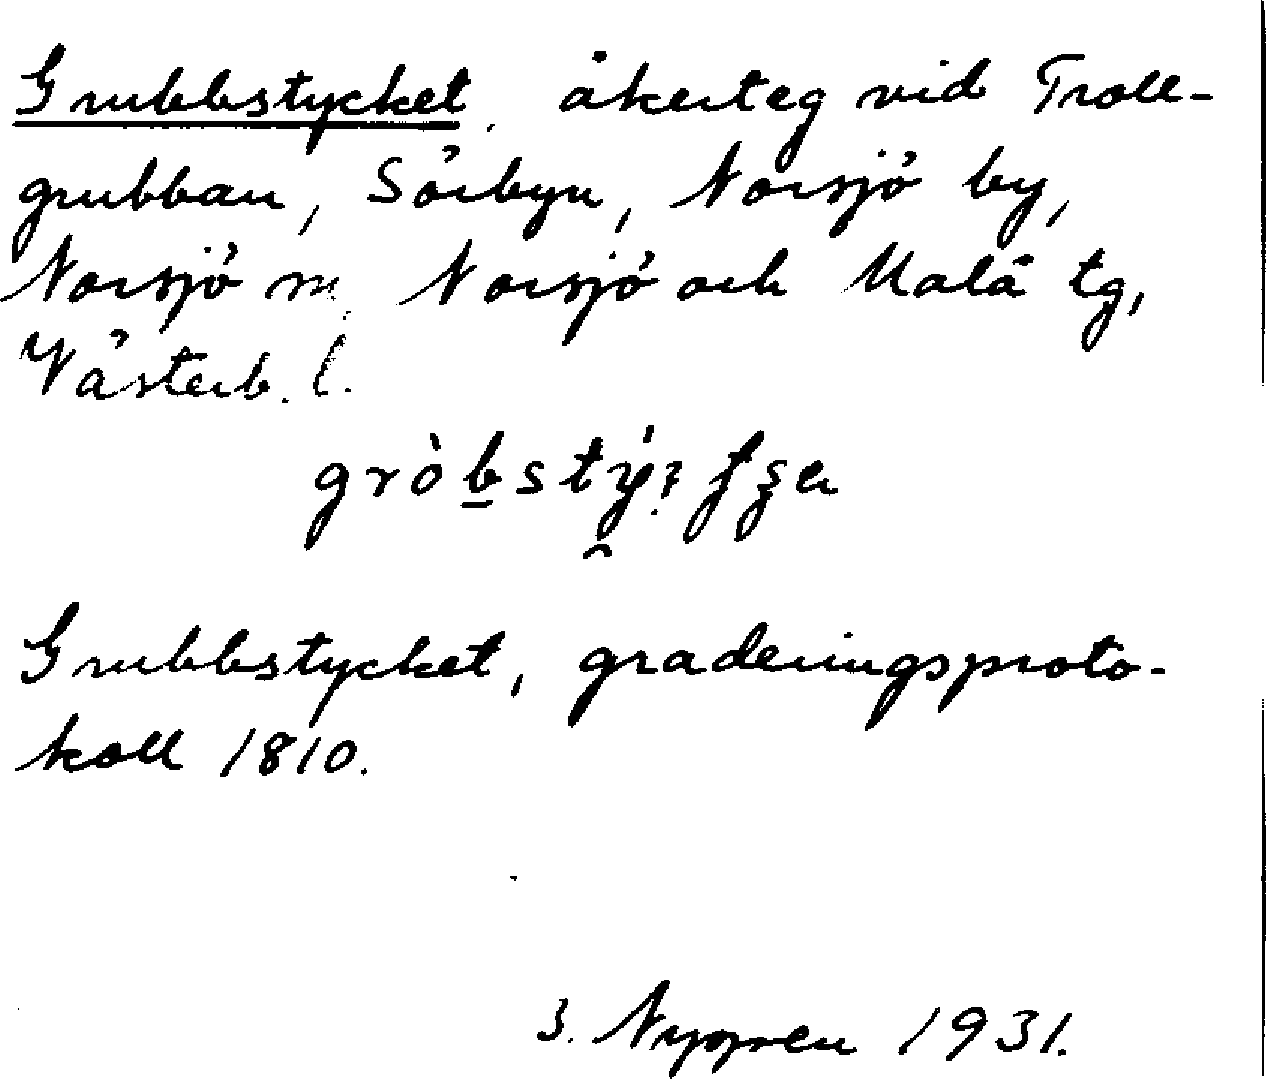 Grubbstycket, åkerteg vid Troll-
grubban, Sörbyn, Norsjö by,
Norsjö sn, Norsjö och Malå tg,
Västerb. l.
Grubbstycket, graderingsproto-
koll 1810.
Nygren 1931.